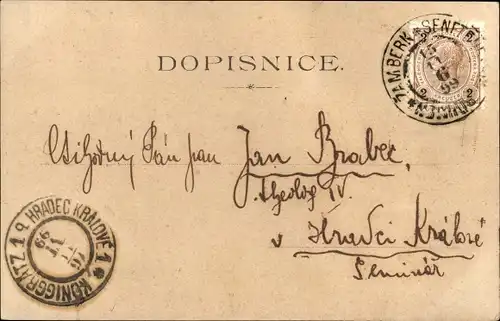 DOPISNICE.
ŽAMBERK * SENFTENBERG
2 2
Ctihodný Pán pan Jan Brabec,
theolog IV.
v Hradci Králové
Seminár
HRADEC KRÁLOVÉ 1 * KÖNIGGRÄTZ 1
99